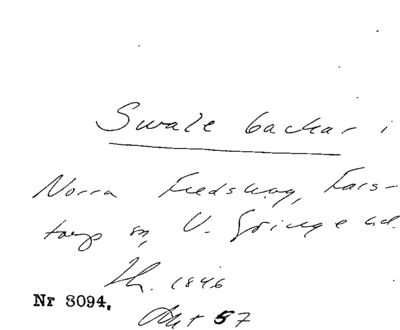 Swale backar i
Norra Fredskog, Fars-
torp sn, V. Göinge hd.
Th. 1846
Nr 8094. Akt 57